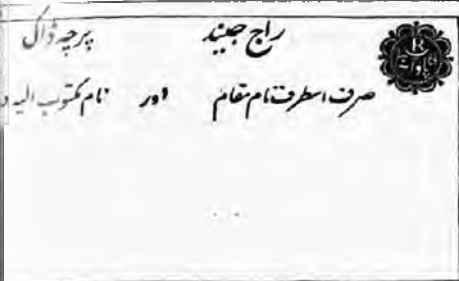 راج جیند پرچہ ڈاک
صرف اسطرف نام مقام اور نام مکتوب الیہ
R